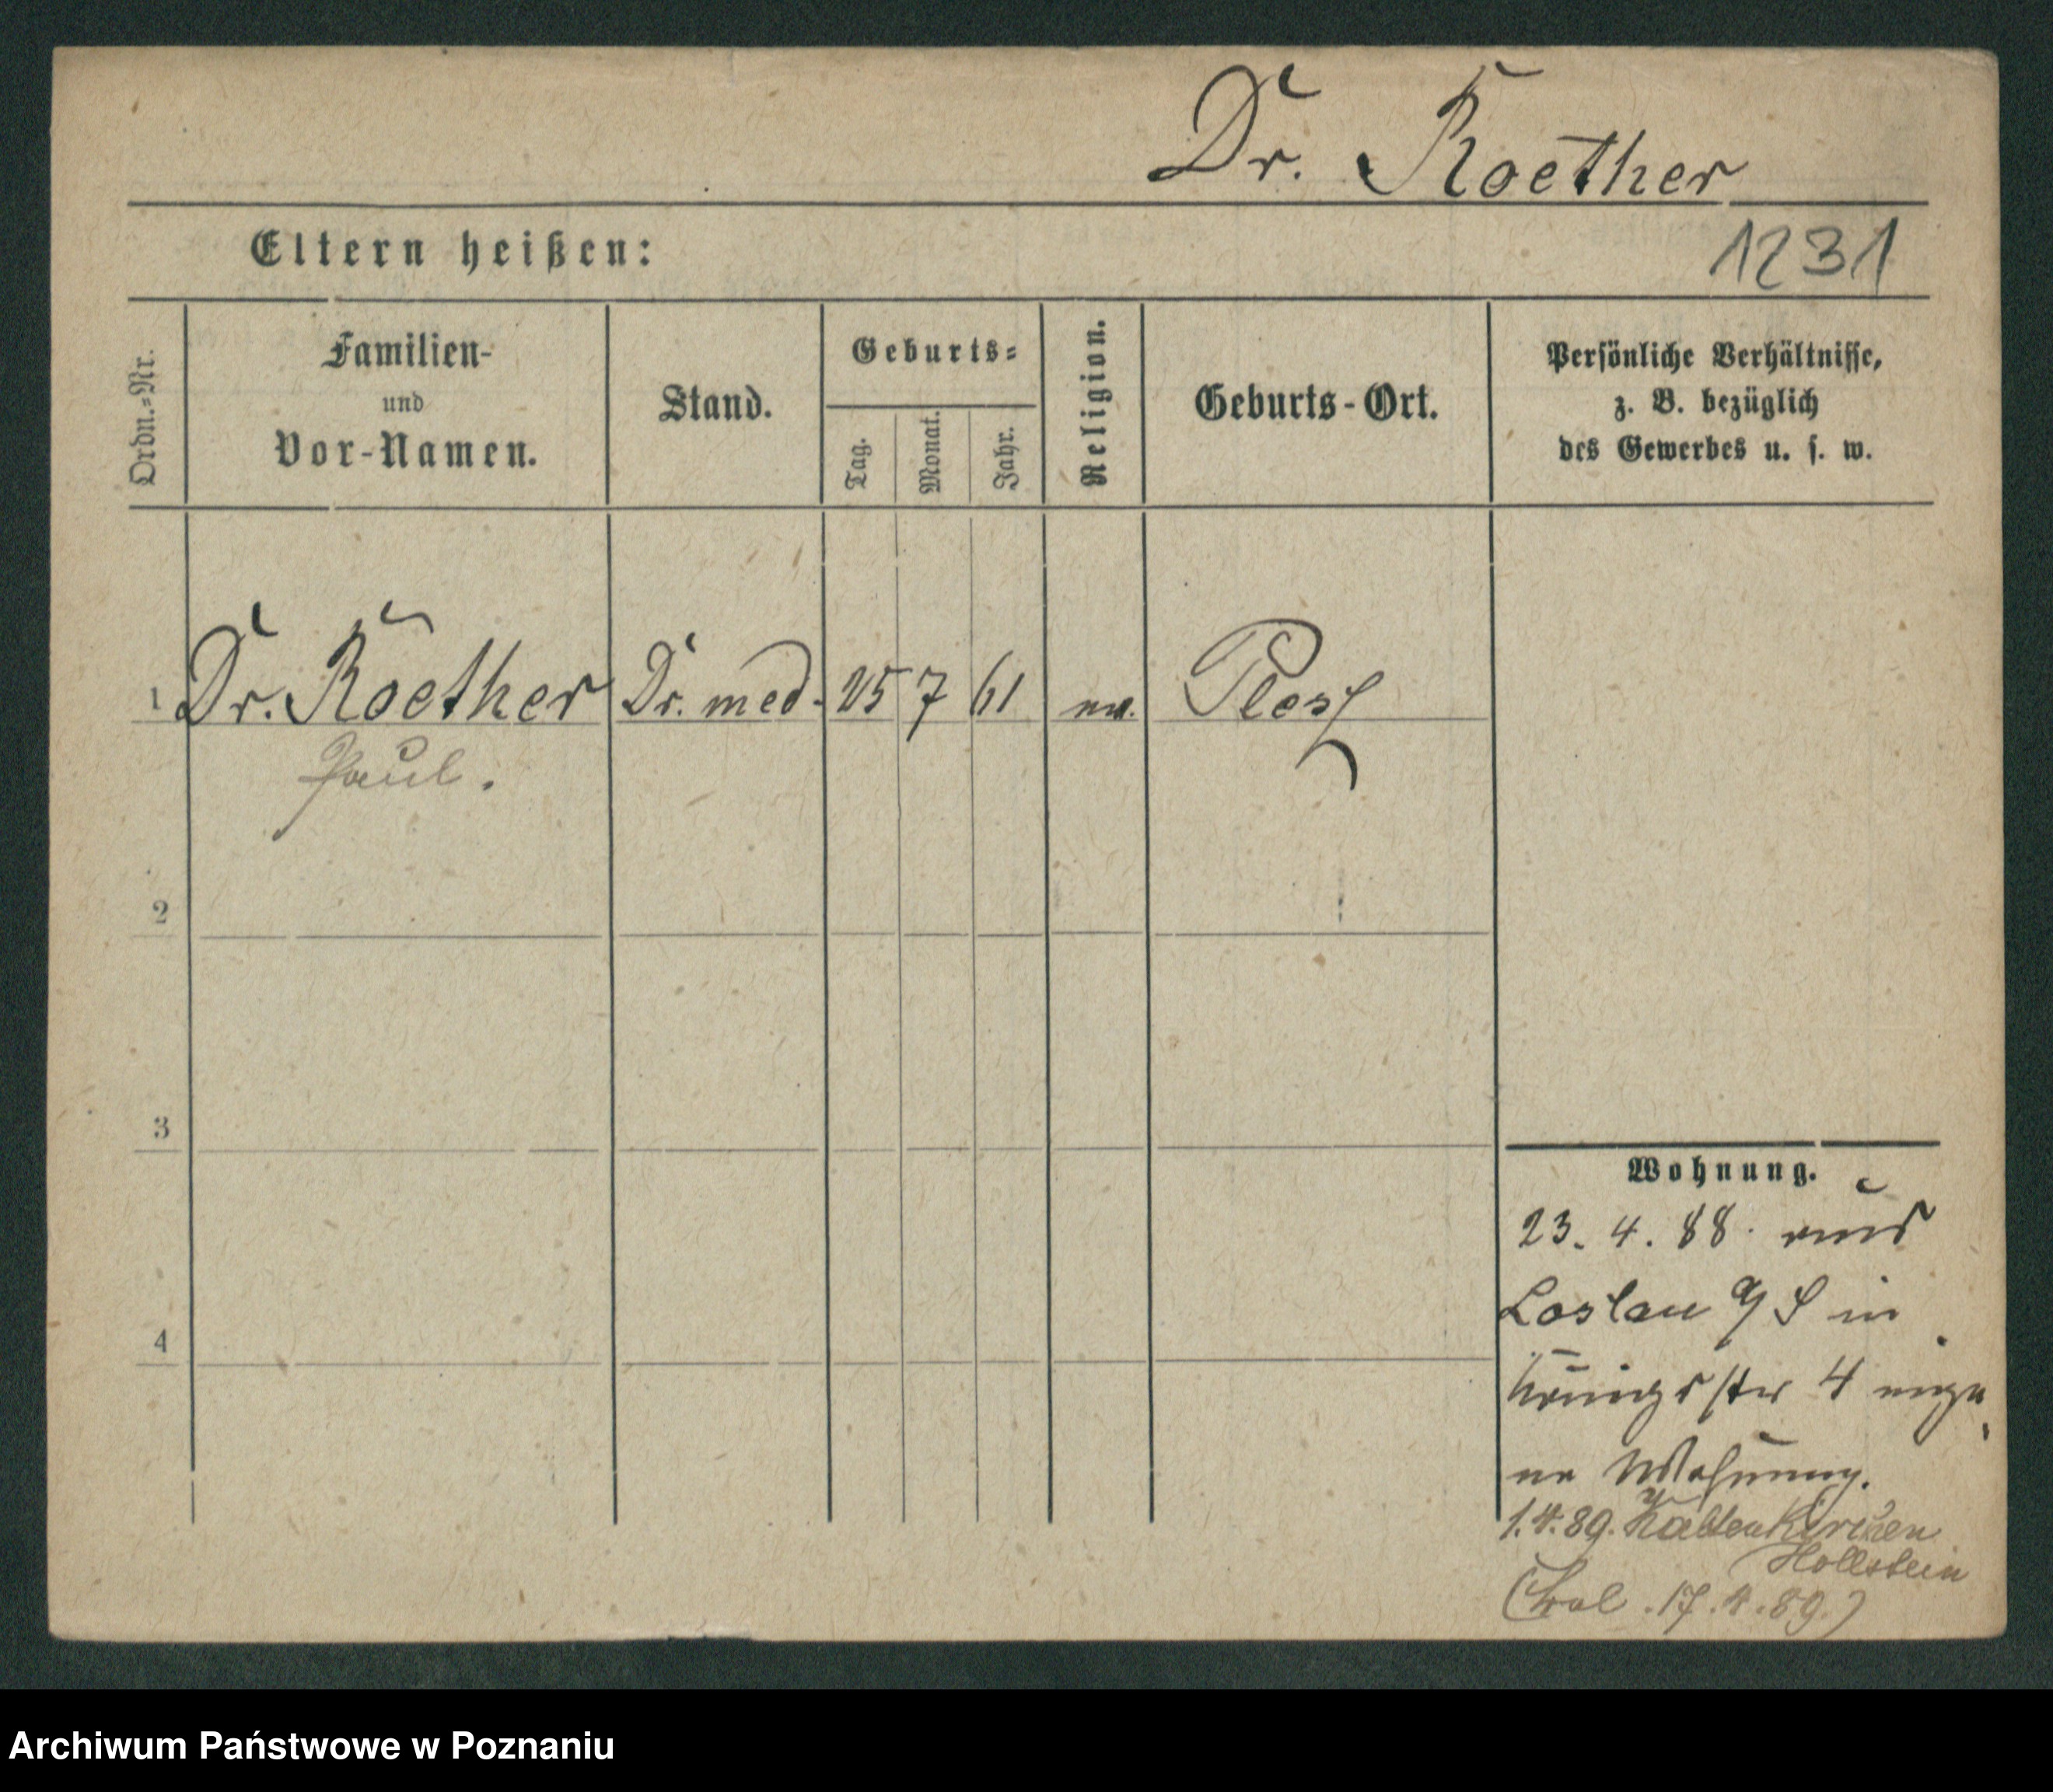 Dr. Roether
Eltern heißen:
1231
Ordn.-Nr.
Familien-
und
Vor-Namen.
Stand.
Geburts-
Tag.
Monat.
Jahr.
Religion.
Geburts-Ort.
Persönliche Verhältnisse,
z. B. bezüglich
des Gewerbes u. s. w.
1 Dr. Roether Dr. med. 25 7 61 ev. Pless
Paul.
2
3
4
Wohnung.
23. 4. 88. aus
Loslau O/S in
Königsstr 4 eige
ne Wohnung.
1.4.89. Kaltenkirchen
Hollstein
17.4.89.)
Archiwum Państwowe w Poznaniu